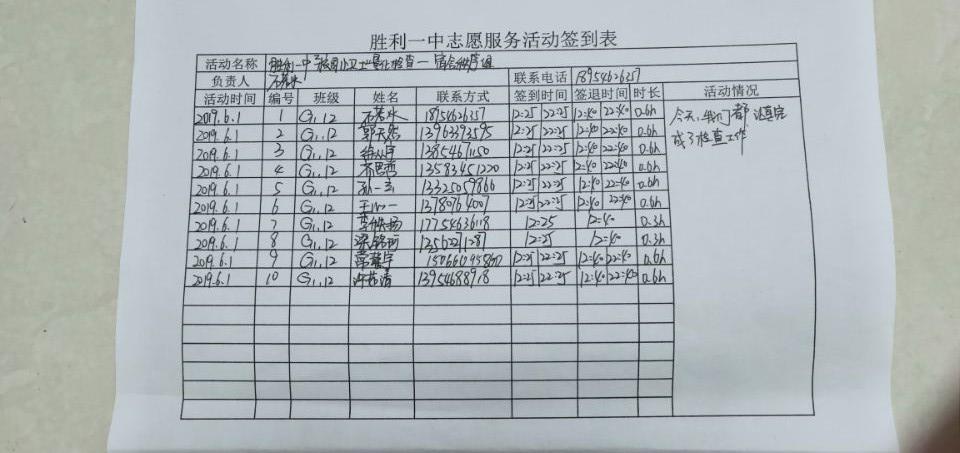 胜利一中志愿服务活动签到表
活动名称 胜利一中校园卫生量化检查一宿舍秩序组
负责人 石若水 联系电话 18954626357
活动时间 编号 班级 姓名 联系方式 签到时间 签退时间 时长 活动情况
2019.6.1 1 G1.12 石若水 18954626357 12:25 22:25 12:40 22:40 0.6h 今天,我们都认真完
2019.6.1 2 G1.12 郭天然 13963393595 12:25 22:25 12:40 22:40 0.6h 成了检查工作
2019.6.1 3 G1.12 12:25 22:25 12:40 22:40 0.6h
2019.6.1 4 G1.12 齐思哲 13583451220 12:25 22:25 12:40 22:40 0.6h
2019.6.1 5 G1.12 孙一 13325059866 12:25 22:25 12:40 22:40 0.6h
2019.6.1 6 G1.12 王心一 13780764007 12:25 22:25 12:40 22:40 0.6h
2019.6.1 7 G1.12 17754636118 12:25 12:40 0.3h
2019.6.1 8 G1.12 12:25 12:40 0.3h
2019.6.1 9 G1.12 12:25 22:25 12:40 22:40 0.6h
2019.6.1 10 G1.12 许茹清 13954688918 12:25 22:25 12:40 22:40 0.6h